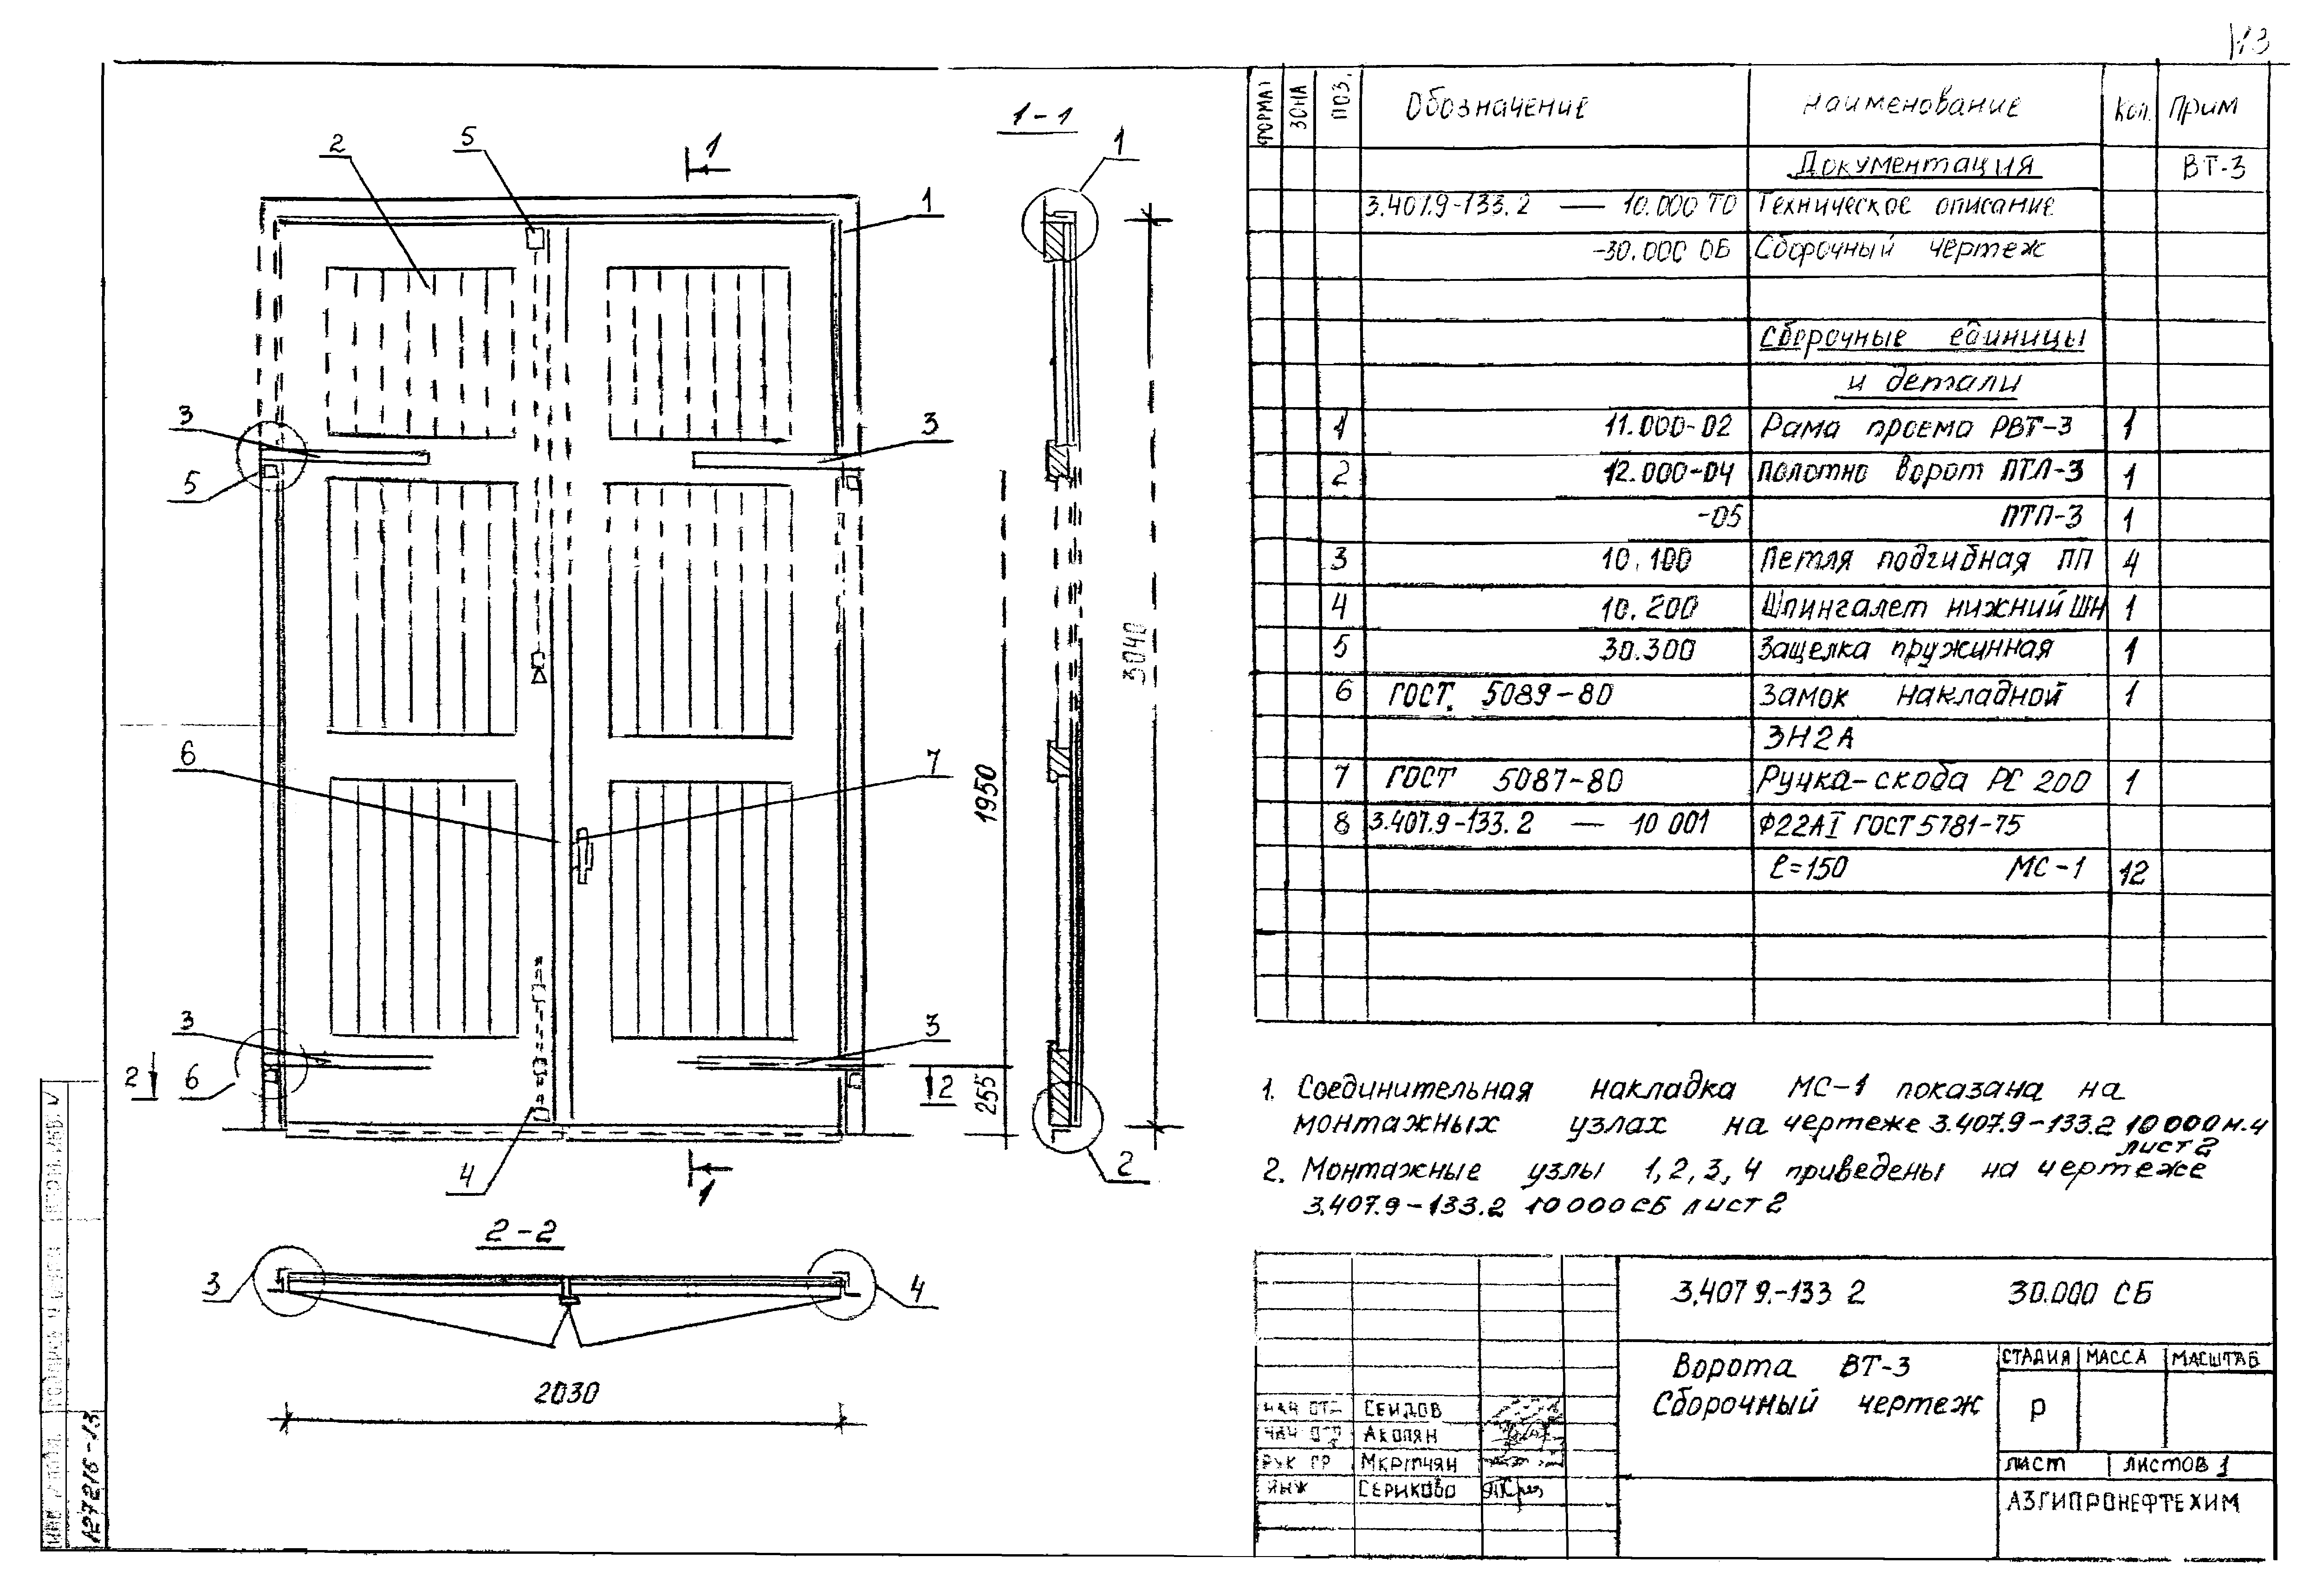 13
2
5
1
1
3
3
5
6
7
3
3
2
6
2
4
1
1950
255
1-1
1
3040
2
2-2
3
4
2030
ФОРМАТ ЗОНА ПОЗ. Обозначение Наименование Кол. Прим
Документация ВТ-3
3.407.9-133.2 — 10.000 ТО Техническое описание
-30.000 ОБ Сборочный чертеж
Сборочные единицы
и детали
1 11.000-02 Рама проема РВТ-3 1
2 12.000-04 Полотно ворот ПТЛ-3 1
-05 ПТП-3 1
3 10.100 Петля подгибная ПП 4
4 10.200 Шпингалет нижний ШН 1
5 30.300 Защелка пружинная 1
6 ГОСТ. 5089-80 Замок накладной 1
ЗН2А
7 ГОСТ 5087-80 Ручка-скоба РС 200 1
8 3.407.9-133.2 — 10 001 Ф22АI ГОСТ 5781-75
ℓ=150 МС-1 12
1. Соединительная накладка МС-1 показана на
монтажных узлах на чертеже 3.407.9-133.2 10000м.ч
лист 2
2. Монтажные узлы 1, 2, 3, 4 приведены на чертеже
3.407.9-133.2 10000СБ лист 2
3.407 9.-133 2 30.000 СБ
Ворота ВТ-3
Сборочный чертеж
СТАДИЯ МАССА МАСШТАБ
Р
ЛИСТ ЛИСТОВ 1
АЗГИПРОНЕФТЕХИМ
НАЧ ОТД СЕИДОВ
НАЧ ОТД АКОПЯН
РУК ГР МКРТЧЯН
ИНЖ СЕРИКОВО